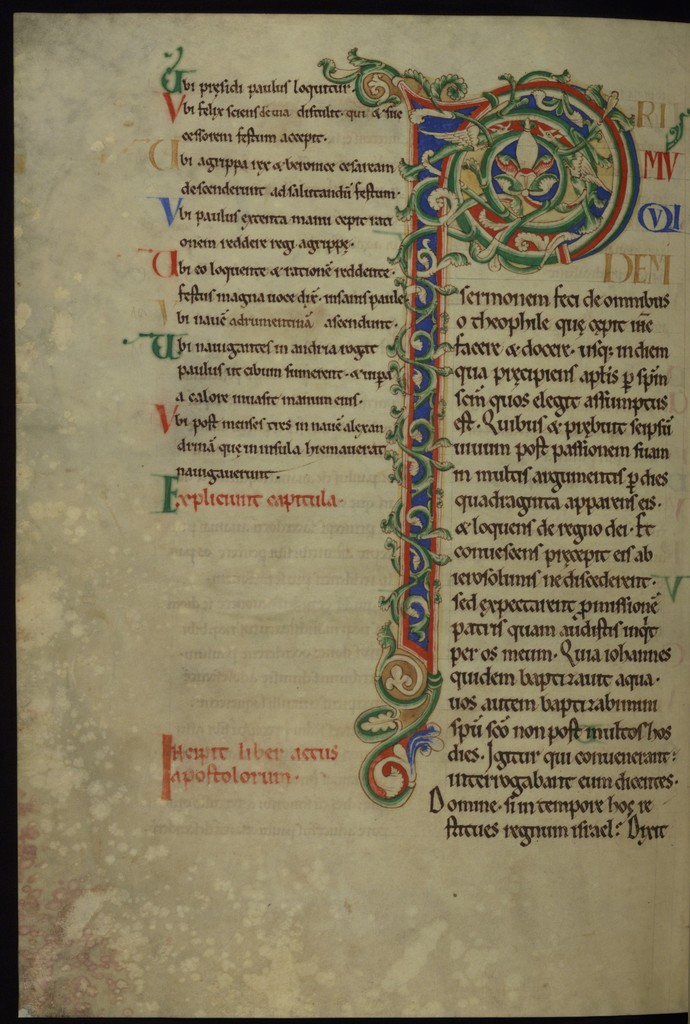 Vbi presidi paulus loquitur.
Vbi felix sciens de uia distulit. qui & suc
cessorem festum accepit.
Vbi agrippa rex & beronice cesaream
descenderunt ad salutandū festum.
Vbi paulus extenta manu cepit rati
onem reddere regi agrippę.
Vbi eo loquente & rationē reddente.
festus magna uoce dix̄. insanis paule.
Vbi nauē adrumetinā ascendunt.
Vbi nauigantes in andria rogat
paulus ut cibum sumerent. & uipa
a calore inuasit manum eius.
Vbi post menses tres in nauē alexan
drinā que in insula hiemauerat
nauigauerunt.
Expliciunt capitula.
Incipit liber actus
apostolorum.
PRI
MV
QVI
DEM
sermonem feci de omnibus
o theophile quę cępit ihē
facere & docere. usq; in diem
qua pręcipiens aplīs p spm̄
scm̄ quos elegit assumptus
est. Quibus & prębuit seipsū
uiuum post passionem suam
in multis argumentis p dies
quadraginta apparens eis.
& loquens de regno dei. Et
conuescens pręcepit eis ab
ierosolimis ne discederent.
sed expectarent pmissionē
patris quam audistis inqt
per os meum. Quia iohannes
quidem baptizauit aqua.
uos autem baptizabimini
spū scō non post multos hos
dies. Igitur qui conuenerant:
interrogabant eum dicentes.
Domine. si in tempore hoc re
stitues regnum israel? Dixit